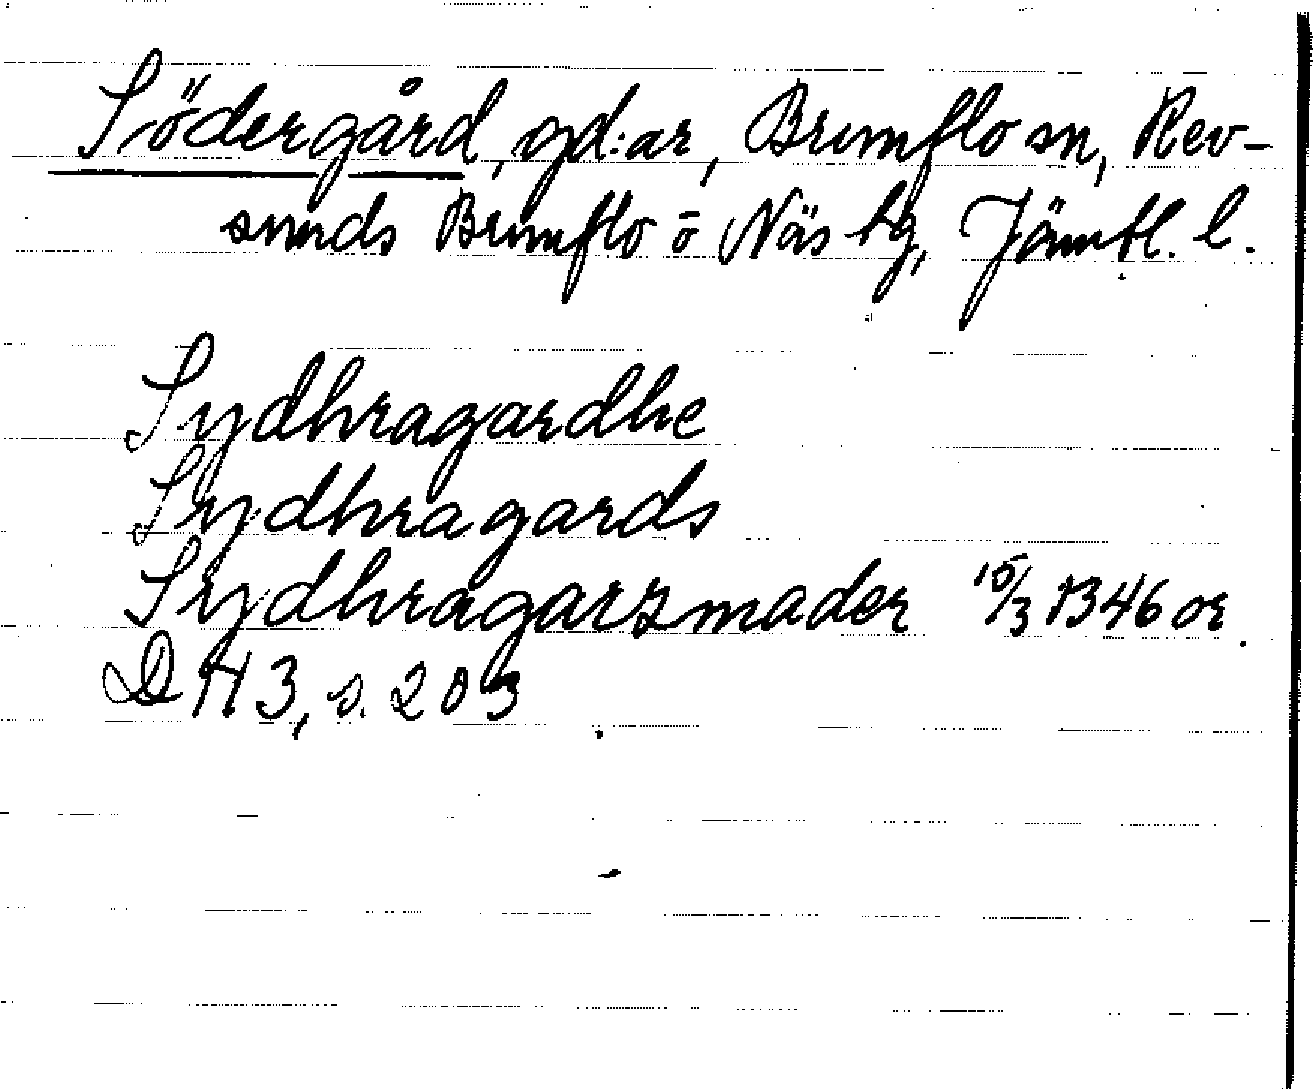 Södergård, gd:ar, Brunflo sn, Rev-
sunds Brunflo o Näs tg, Jämtl. l.
Sydhragardhe
Sydhragards
Sydhragarzmader 15/3 1346 or.
DH 3, s. 203